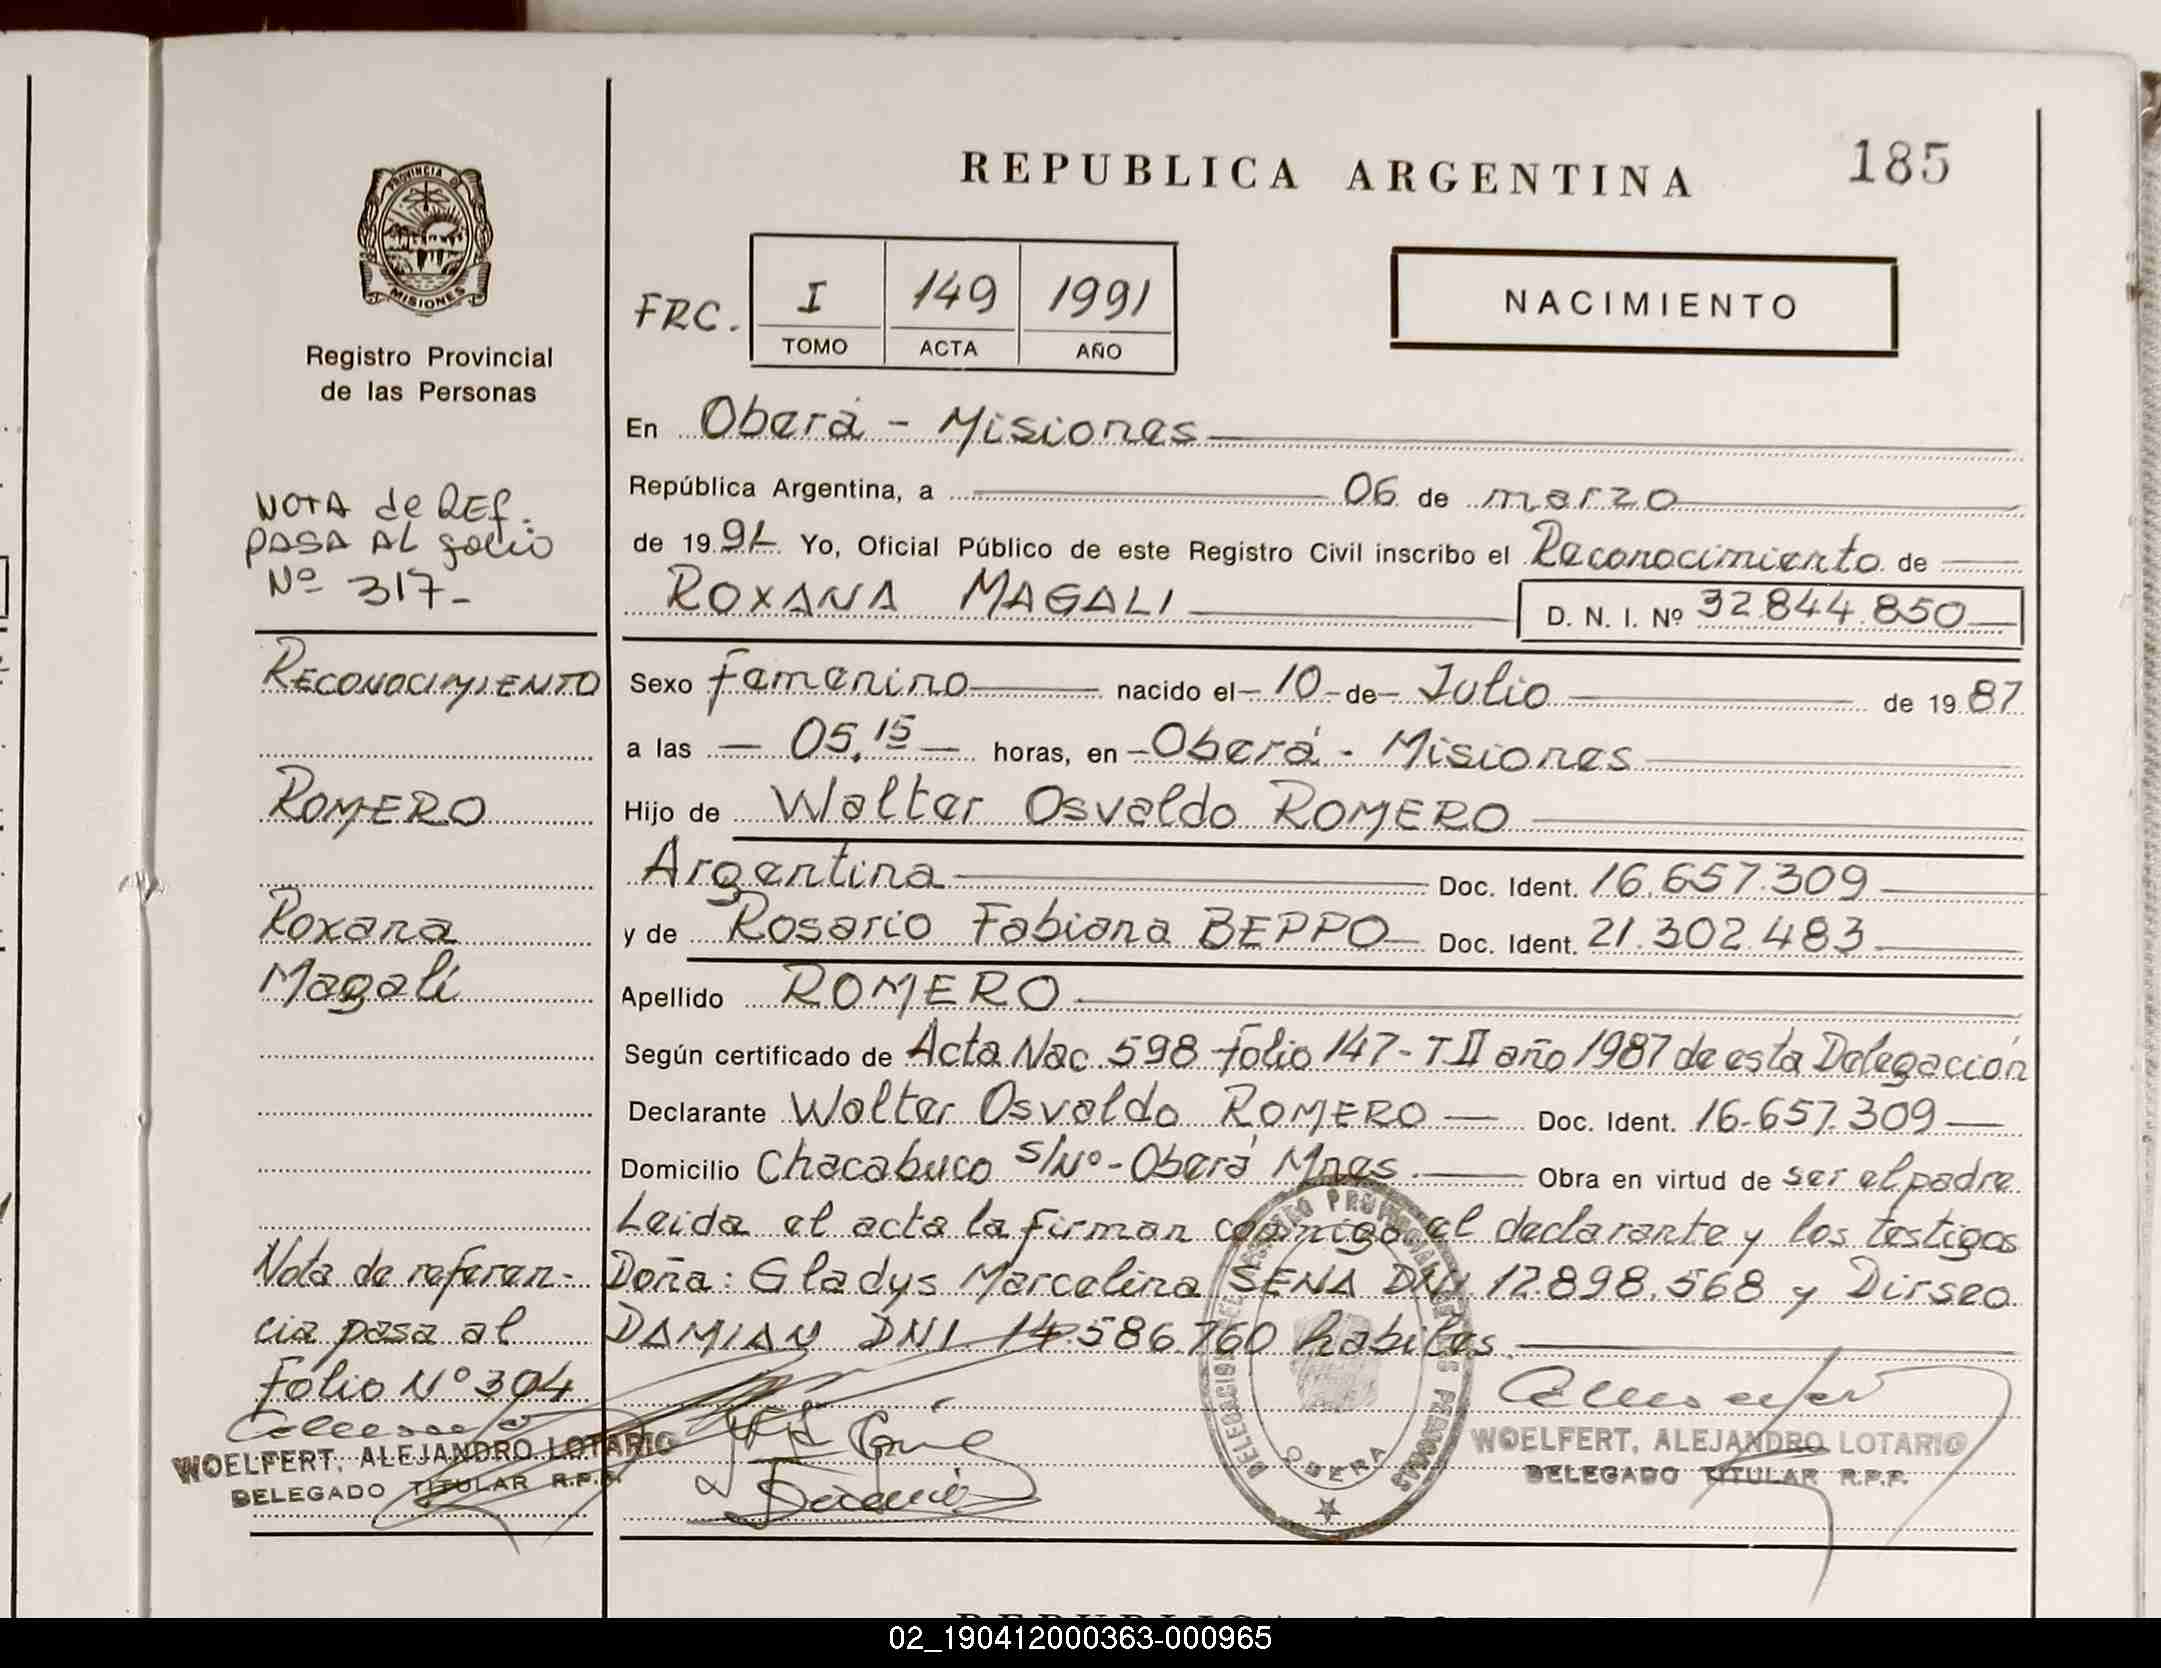 REPUBLICA ARGENTINA
185
PROVINCIA DE
MISIONES
Registro Provincial
de las Personas
FRC.
I 149 1991
TOMO ACTA AÑO
NACIMIENTO
En Oberá - Misiones
República Argentina, a 06 de marzo
de 1991 Yo, Oficial Público de este Registro Civil inscribo el Reconocimiento de
ROXANA MAGALI D. N. I. Nº 32.844.850
Sexo femenino nacido el 10 de Julio de 1987
a las 05,15 horas, en Oberá - Misiones
Hijo de Walter Osvaldo ROMERO
Argentina Doc. Ident. 16.657.309
y de Rosario Fabiana BEPPO Doc. Ident. 21.302.483
Apellido ROMERO
Según certificado de Acta Nac. 598 folio 147 - T II año 1987 de esta Delegación
Declarante Walter Osvaldo ROMERO Doc. Ident. 16.657.309
Domicilio Chacabuco s/Nº - Oberá Mnes. Obra en virtud de ser el padre
Leida el acta la firman conmigo el declarante y los testigos
Doña: Gladys Marcelina SENA DNI. 12.898.568 y Dirseo
DAMIAN DNI. 14.586.760 habiles.
NOTA de REF.
PASA AL folio
Nº 317-
RECONOCIMIENTO
ROMERO
Roxana
Magali
Nota de referen-
cia pasa al
Folio Nº 304
WOELFERT, ALEJANDRO LOTARIO
DELEGADO TITULAR R.P.P.
OBERA
WOELFERT, ALEJANDRO LOTARIO
DELEGADO TITULAR R.P.P.
02_190412000363-000965